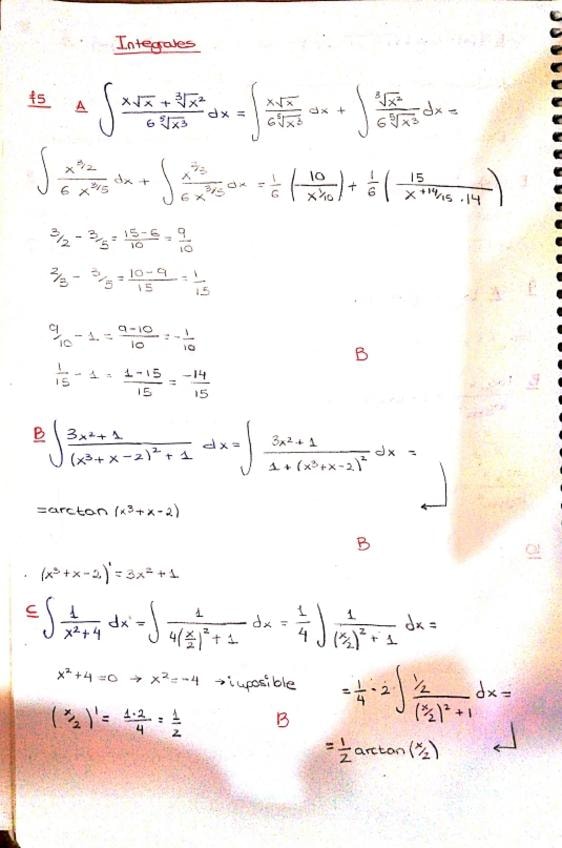 Integrales
15 A ∫ (x√x + ∛x²)/(6 ⁵√x³) dx = ∫ x√x/(6 ⁵√x³) dx + ∫ ∛x²/(6 ⁵√x³) dx =
∫ x^(3/2)/(6 x^(3/5)) dx + ∫ x^(2/3)/(6 x^(3/5)) dx = 1/6 (10/x^(1/10)) + 1/6 (15/(x^(+14/15) · 14))
3/2 - 3/5 = (15-6)/10 = 9/10
2/3 - 3/5 = (10-9)/15 = 1/15
9/10 - 1 = (9-10)/10 = -1/10
B
1/15 - 1 = (1-15)/15 = -14/15
B ∫ (3x²+1)/((x³+x-2)² + 1) dx = ∫ (3x²+1)/(1+(x³+x-2)²) dx =
= arctan (x³+x-2)
B
(x³+x-2)' = 3x²+1
C ∫ 1/(x²+4) dx = ∫ 1/(4(x/2)² + 1) dx = 1/4 ∫ 1/((x/2)² + 1) dx =
x²+4=0 → x²=-4 → imposible
= 1/4 · 2 ∫ (1/2)/((x/2)² + 1) dx =
(x/2)' = (1·2)/4 = 1/2
B
= 1/2 arctan (x/2)